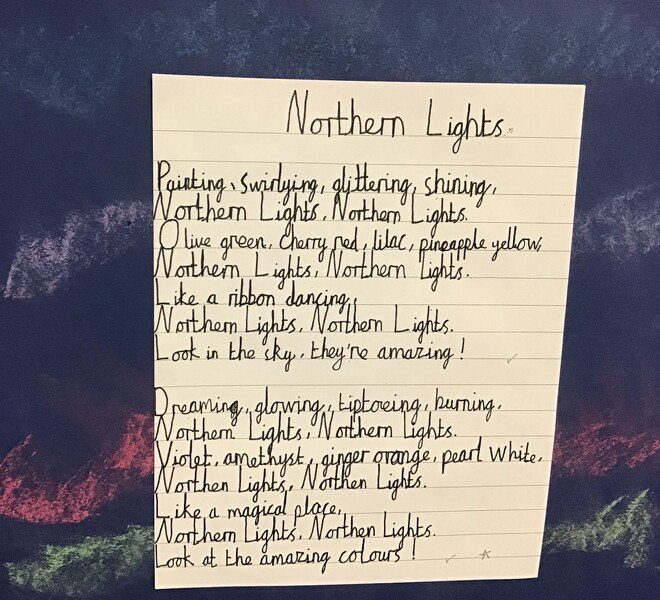 Northern Lights.
Painting, swirlying, glittering, shining,
Northern Lights, Northern Lights.
Olive green, cherry red, lilac, pineapple yellow,
Northern Lights, Northern Lights.
Like a ribbon dancing,
Northern Lights, Northern Lights.
Look in the sky, they're amazing!
Dreaming, glowing, tiptoeing, burning,
Northern Lights, Northern Lights.
Violet, amethyst, ginger orange, pearl White,
Northen Lights, Northen Lights.
Like a magical place,
Northern Lights, Northen Lights.
Look at the amazing colours!